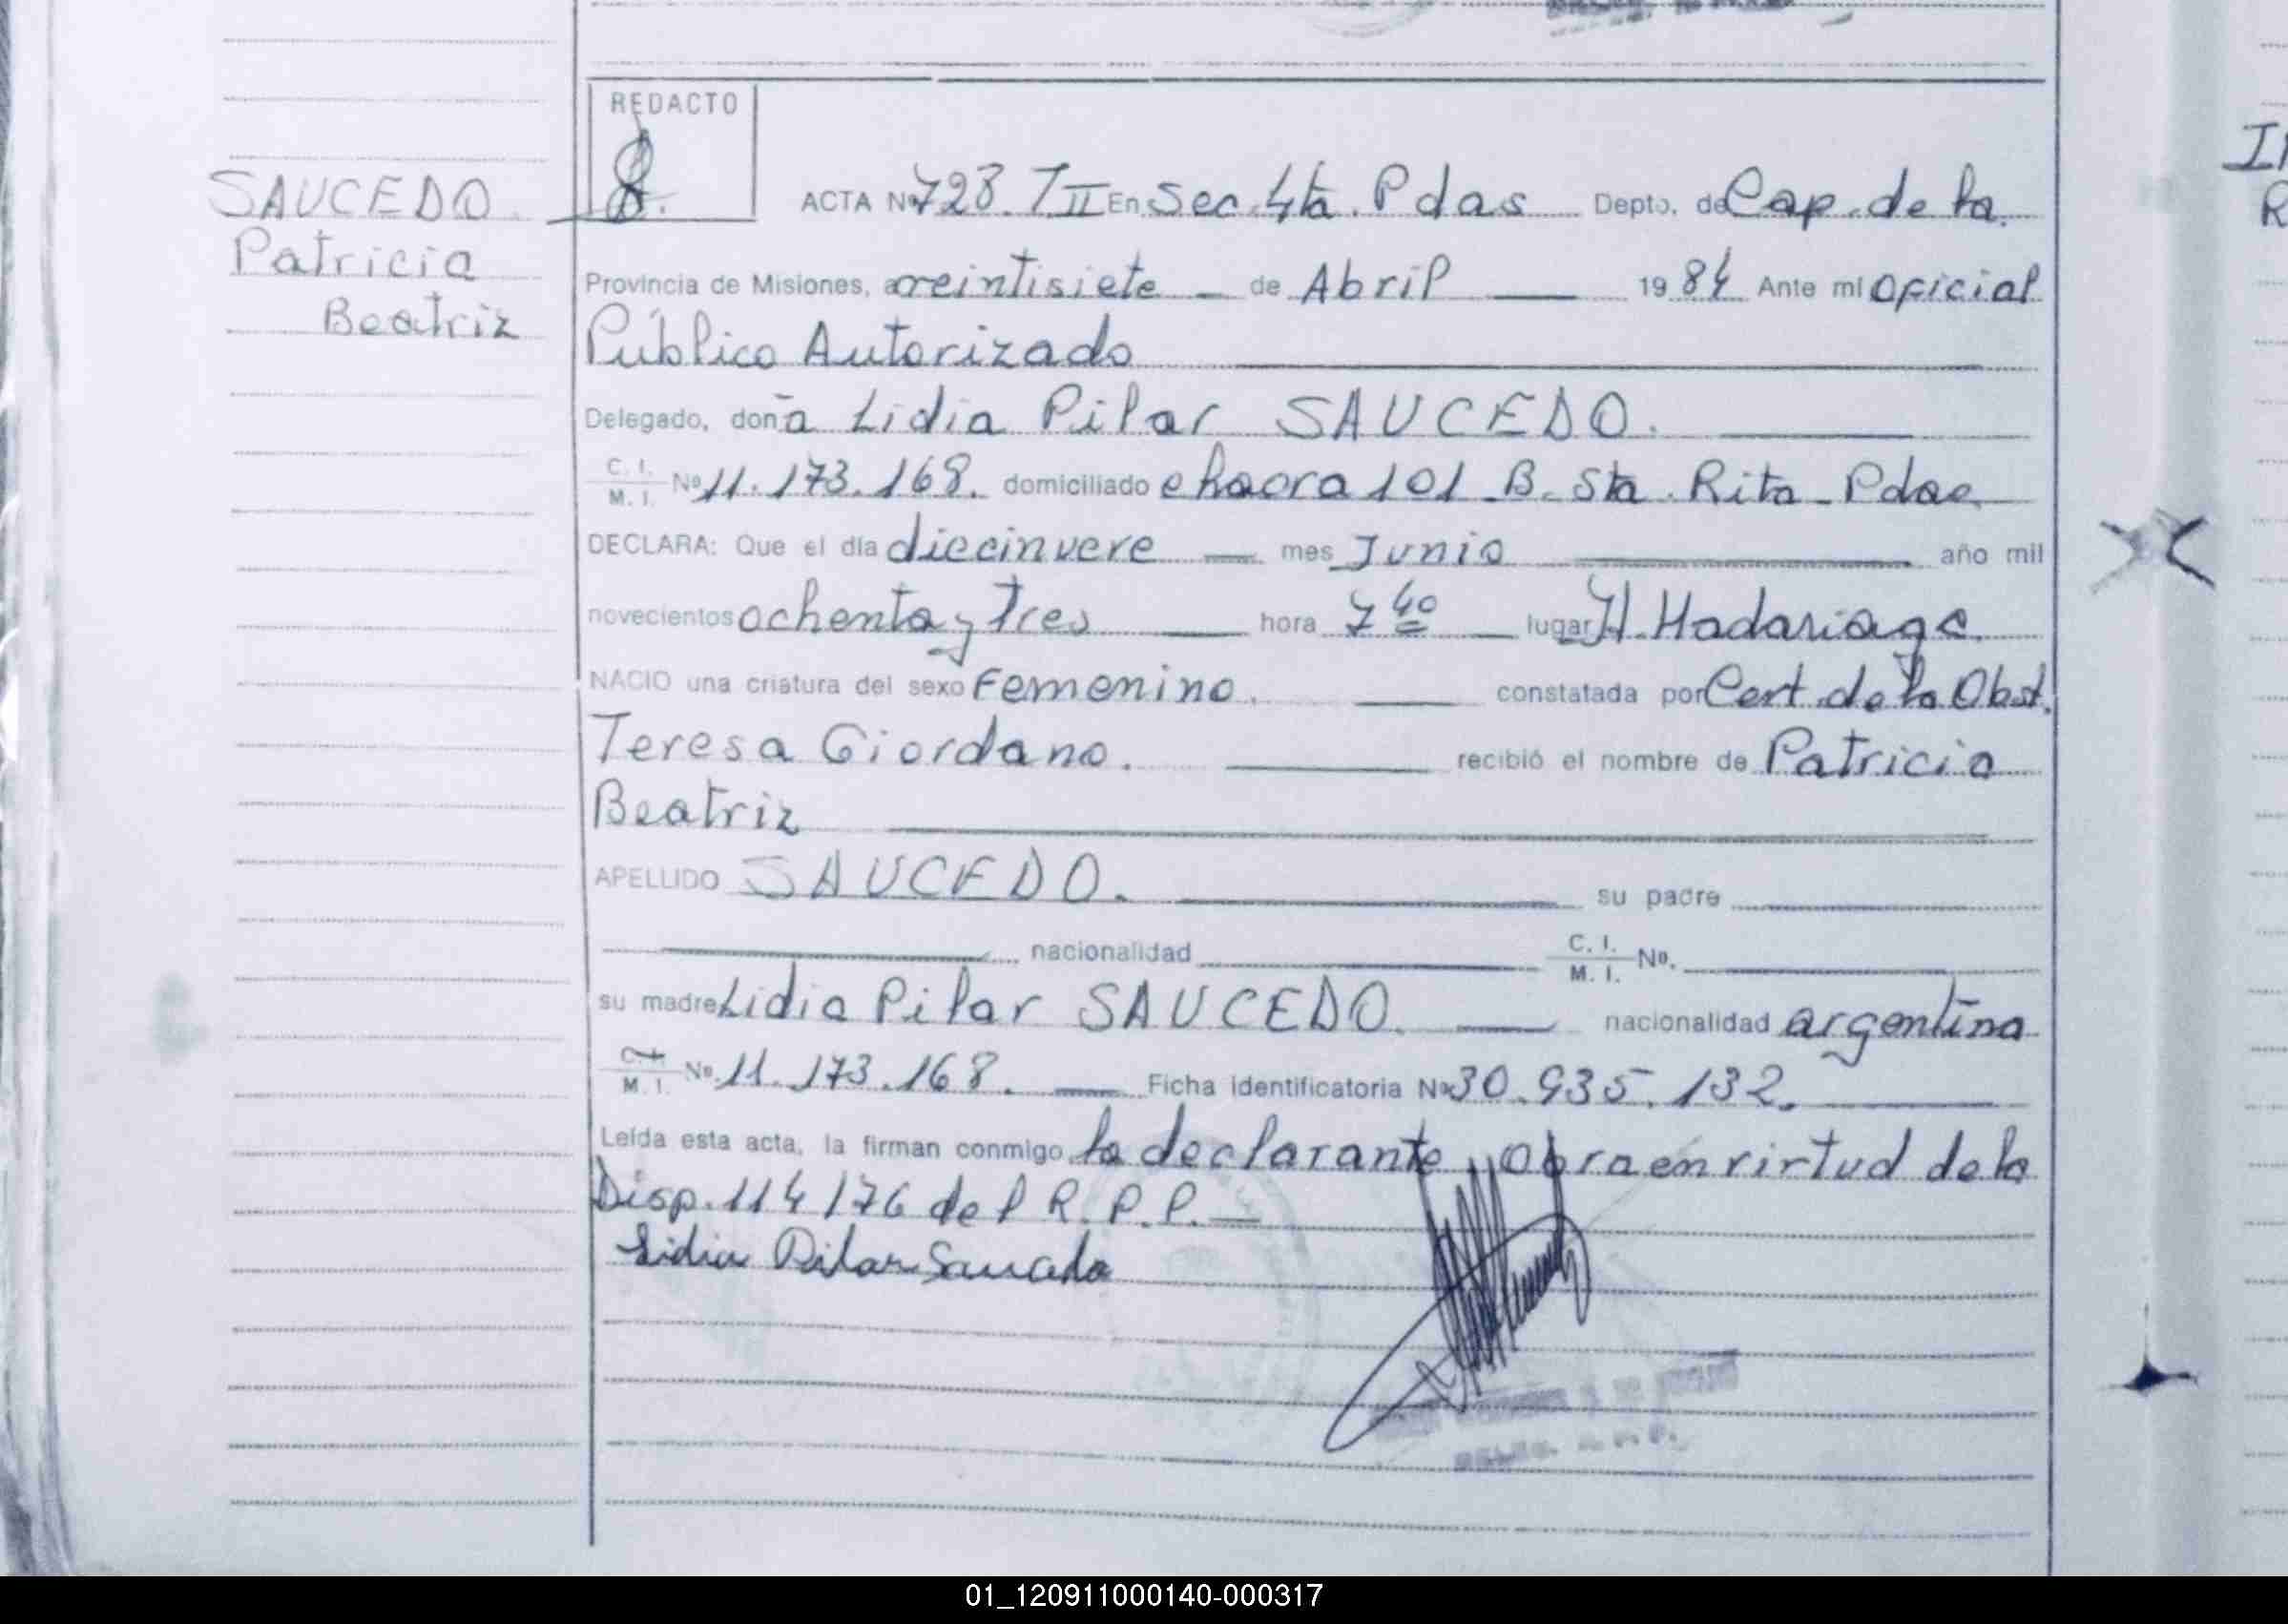 REDACTO
SAUCEDO.
Patricia
Beatriz
ACTA Nº 728. T II En Sec. 4ta. Pdas Depto. de Cap. de la
Provincia de Misiones, a veintisiete de Abril 1984 Ante mi Oficial
Público Autorizado
Delegado, doña Lidia Pilar SAUCEDO.
C. I. M. I. Nº 11.173.168. domiciliado chacra 101 B. Sta. Rita - Pdas
DECLARA: Que el día diecinueve mes Junio año mil
novecientos ochenta y tres hora 7 40 lugar H. Madariaga
NACIO una criatura del sexo Femenino. constatada por Cert. de la Obst.
Teresa Giordano. recibió el nombre de Patricia
Beatriz
APELLIDO SAUCEDO. su padre
nacionalidad C. I. M. I. Nº.
su madre Lidia Pilar SAUCEDO. nacionalidad argentina
C. I. M. I. Nº 11.173.168. Ficha identificatoria Nº 30.935.132.
Leída esta acta, la firman conmigo la declarante, Obra en virtud de la
Disp. 114/76 del R. P. P.
Lidia Pilar Saucedo
01_120911000140-000317